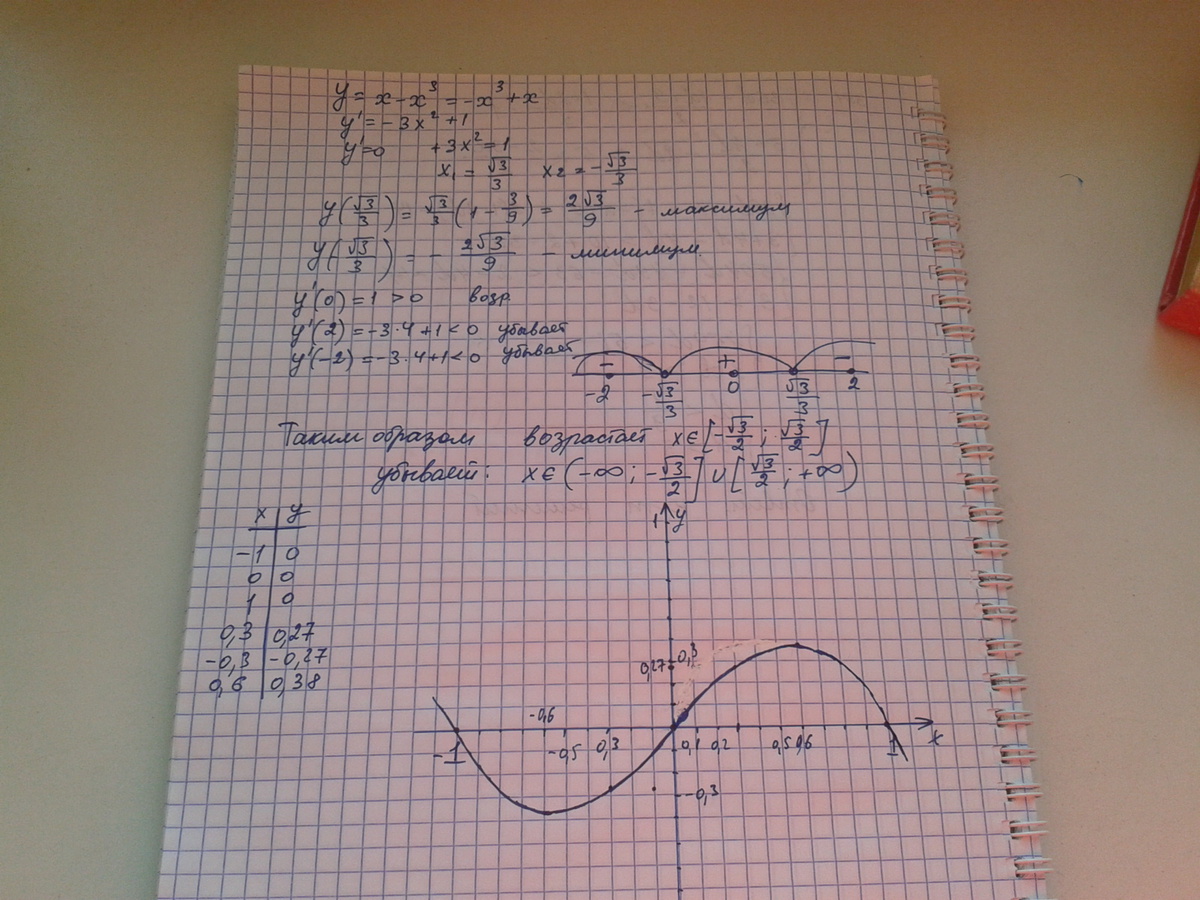 y = x - x³ = -x³ + x
y' = -3x² + 1
y' = 0 +3x² = 1
x₁ = √3/3 x₂ = -√3/3
y(√3/3) = √3/3 (1 - 3/9) = 2√3/9 - максимум
y(√3/3) = - 2√3/9 - минимум.
y'(0) = 1 > 0 возр.
y'(2) = -3·4+1 < 0 убывает
y'(-2) = -3·4+1 < 0 убывает
- + -
-2 -√3/3 0 √3/3 2
Таким образом возрастает x∈[-√3/2 ; √3/2]
убывает: x∈(-∞ ; -√3/2] ∪ [√3/2 ; +∞)
x y
-1 0
0 0
1 0
0,3 0,27
-0,3 -0,27
0,6 0,38
1 y
0,27 0,3
-0,6
-1 -0,5 0,3 0,1 0,2 0,5 0,6 1 x
-0,3